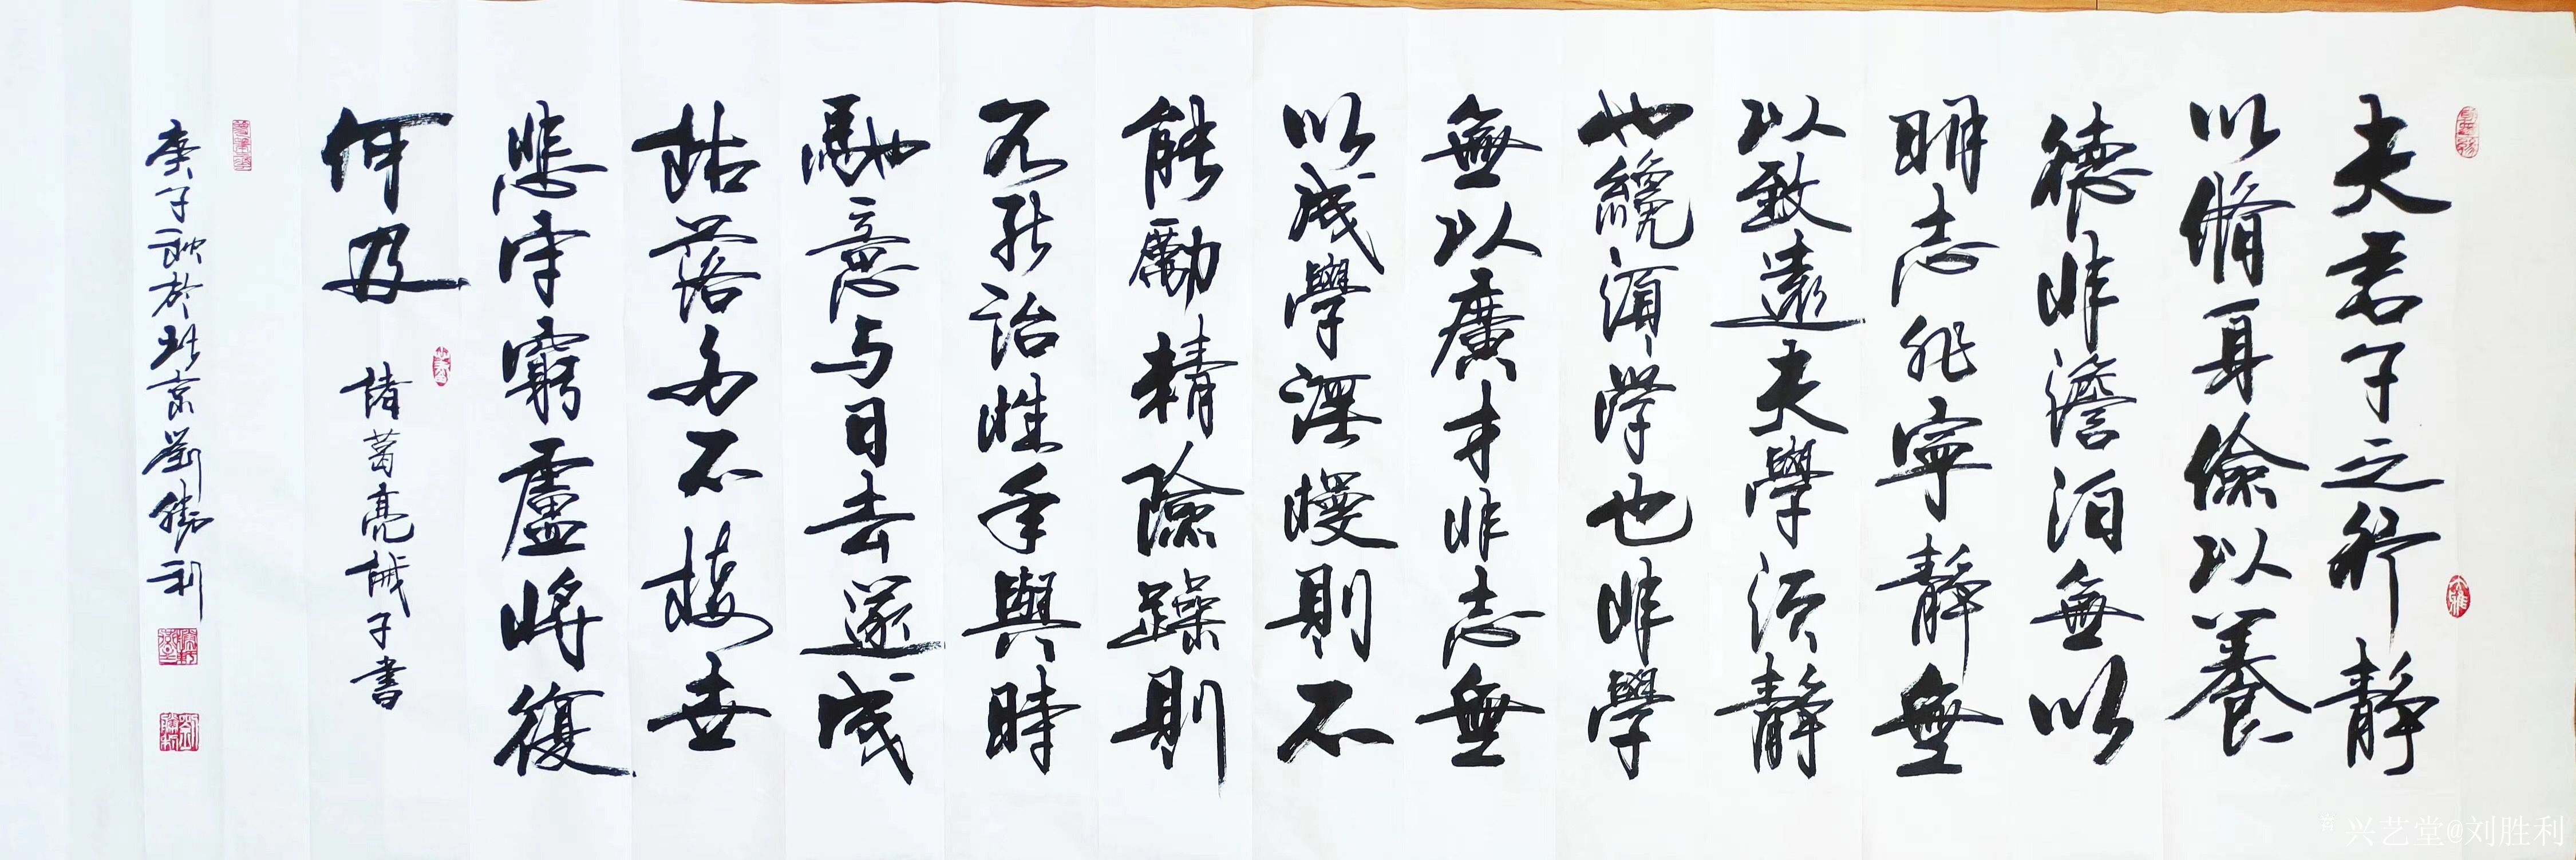 夫君子之行靜
以脩身儉以養
德非澹泊無以
明志非寧靜無
以致遠夫學須靜
也纔須學也非學
無以廣才非志無
以成學淫慢則不
能勵精險躁則
不能治性年與時
馳意与日去遂成
枯落多不接世
悲守窮盧將復
何及
諸葛亮誡子書
庚子秋於北京劉勝利
兴艺堂@刘胜利